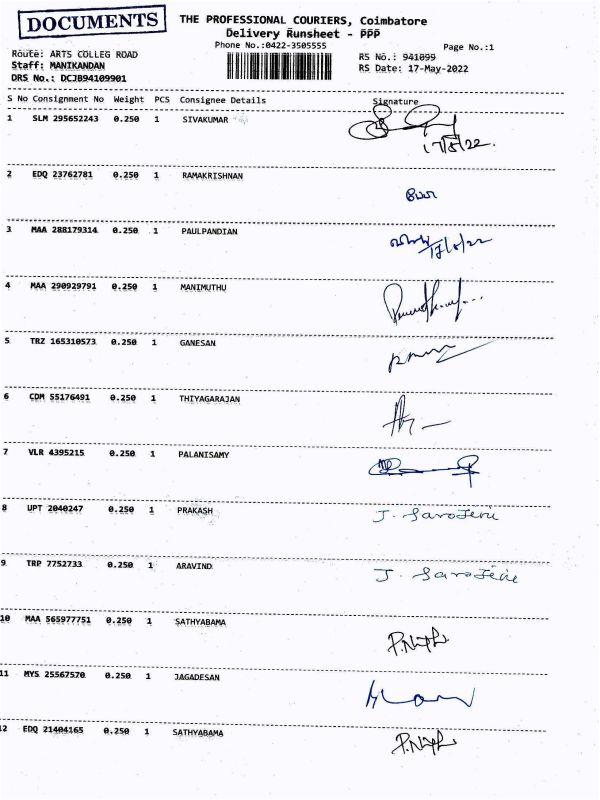 DOCUMENTS
THE PROFESSIONAL COURIERS, Coimbatore
Delivery Runsheet - PPP
Phone No.:0422-3505555
Page No.:1
Route: ARTS COLLEG ROAD
RS No.: 941099
Staff: MANIKANDAN
RS Date: 17-May-2022
DRS No.: DCJB94109901
S No Consignment No Weight PCS Consignee Details Signature
1 SLM 295652243 0.250 1 SIVAKUMAR
17/5/22.
2 EDQ 23762781 0.250 1 RAMAKRISHNAN
3 MAA 288179314 0.250 1 PAULPANDIAN
4 MAA 290929791 0.250 1 MANIMUTHU
5 TRZ 165310573 0.250 1 GANESAN
6 CDM 55176491 0.250 1 THIYAGARAJAN
7 VLR 4395215 0.250 1 PALANISAMY
8 UPT 2040247 0.250 1 PRAKASH J. Sarojeni
9 TRP 7752733 0.250 1 ARAVIND J. Sarojeni
10 MAA 565977751 0.250 1 SATHYABAMA
11 MYS 25567570 0.250 1 JAGADESAN
12 EDQ 21404165 0.250 1 SATHYABAMA